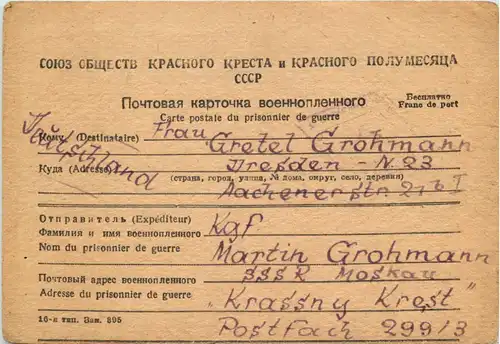 СОЮЗ ОБЩЕСТВ КРАСНОГО КРЕСТА и КРАСНОГО ПОЛУМЕСЯЦА
СССР
Почтовая карточка военнопленного
Бесплатно
Franc de port
Carte postale du prisonnier de guerre
Кому (Destinataire) Frau Gretel Grohmann
Deutschland
Куда (Adresse) Dresden - N. 23
(страна, город, улица, № дома, округ, село, деревня)
Aachenerstr. 21 b I
Отправитель (Expéditeur) Kgf
Фамилия и имя военнопленного
Nom du prisonnier de guerre Martin Grohmann
Почтовый адрес военнопленного SSSR Moskau
Adresse du prisonnier de guerre "Krassny Krest"
16-я тип. Зак. 895 Postfach 299/3